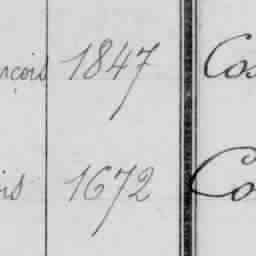 nçois 1847 Cos
is 1672 Co